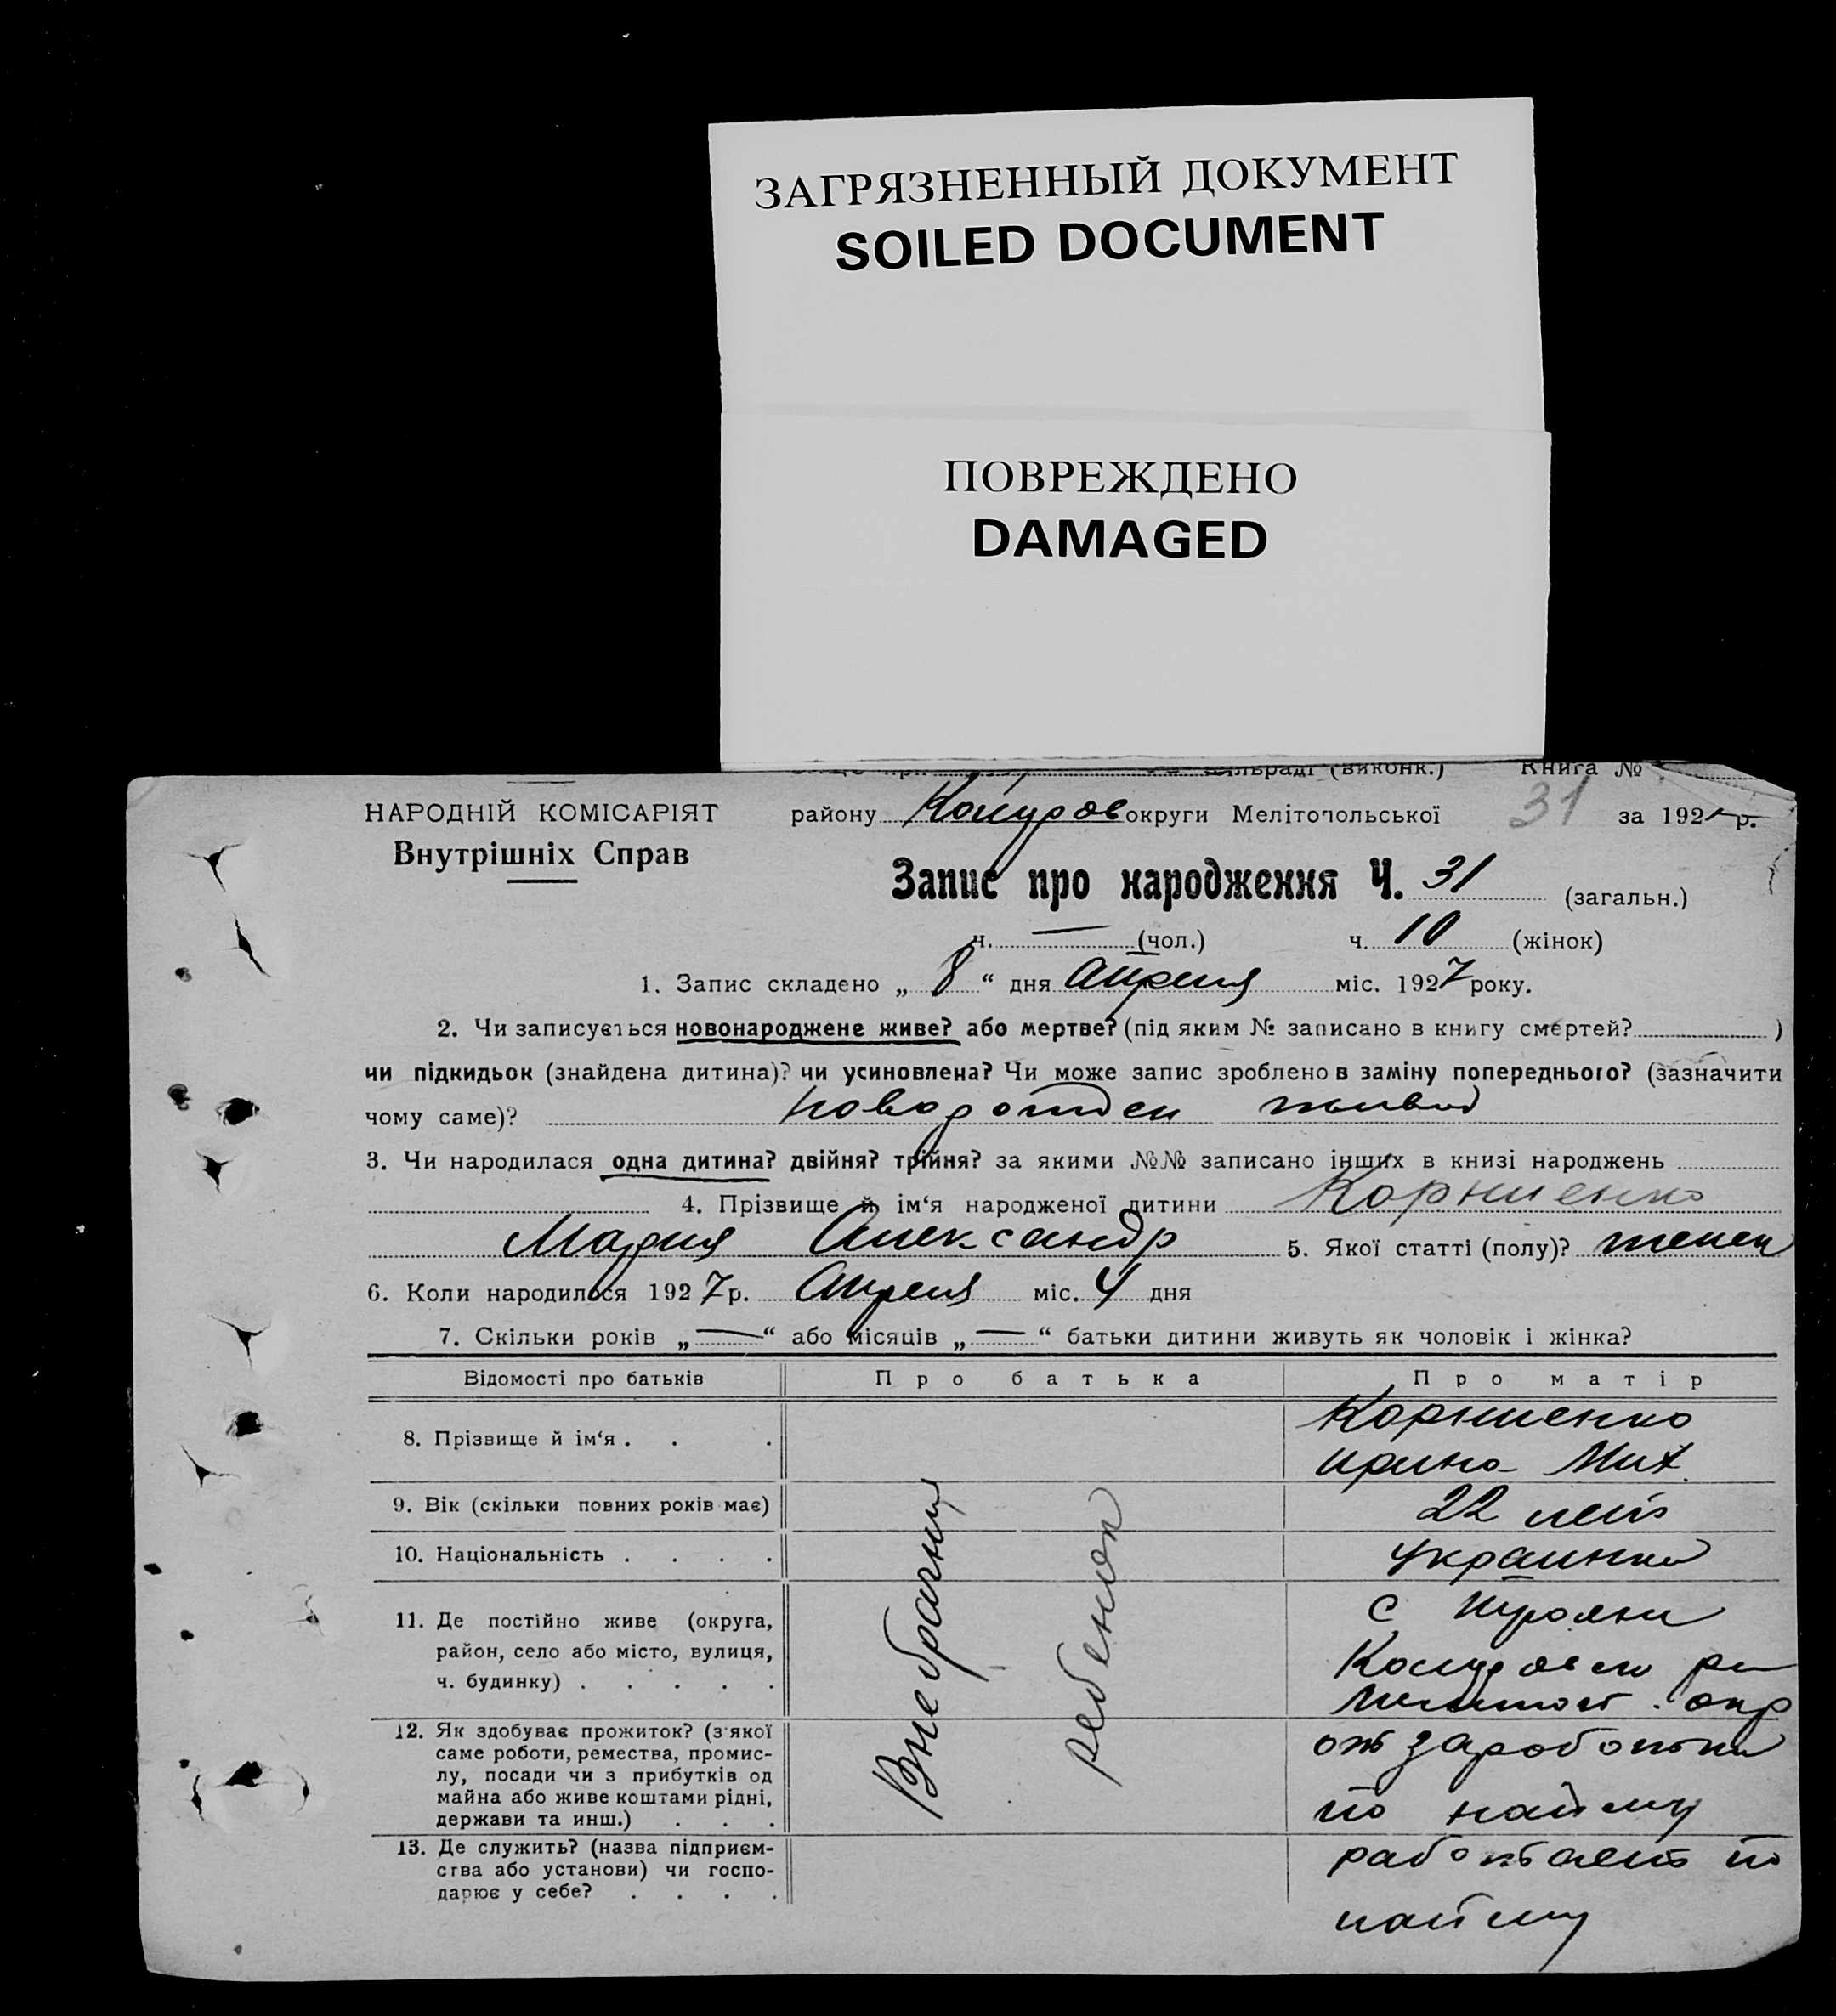 ЗАГРЯЗНЕННЫЙ ДОКУМЕНТ
SOILED DOCUMENT
ПОВРЕЖДЕНО
DAMAGED
(виконк.) Книга №
НАРОДНІЙ КОМІСАРІЯТ
Внутрішніх Справ
району округи Мелітопольської 31 за 192 р.
Запис про народження Ч. 31 (загальн.)
ч. — (чол.) ч. 10 (жінок)
1. Запис складено „ 8 “ дня Апреля міс. 1927 року.
2. Чи записується новонароджене живе? або мертве? (під яким № записано в книгу смертей? )
чи підкидьок (знайдена дитина)? чи усиновлена? Чи може запис зроблено в заміну попереднього? (зазначити
чому саме)?
3. Чи народилася одна дитина? двійня? трійня? за якими №№ записано інших в книзі народжень
4. Прізвище й ім‘я народженої дитини Корниенко
Мария Александр 5. Якої статті (полу)? женск
6. Коли народилося 1927 р. Апреля міс. 4 дня
7. Скільки років „ — “ або місяців „ — “ батьки дитини живуть як чоловік і жінка?
Відомості про батьків Про батька Про матір
8. Прізвище й ім‘я . . . Корниенко
Ирина Мих.
9. Вік (скільки повних років має) 22 лет
10. Національність . . . . украинка
11. Де постійно живе (округа,
район, село або місто, вулиця,
ч. будинку) . . . . .
с Трояны
12. Як здобуває прожиток? (з якої
саме роботи, ремества, промис-
лу, посади чи з прибутків од
майна або живе коштами рідні,
держави та инш.) . . .
от заработка
по найму
13. Де служить? (назва підприєм-
ства або установи) чи госпо-
дарює у себе? . . . .
работает по
найму
Внебрачный
ребенок